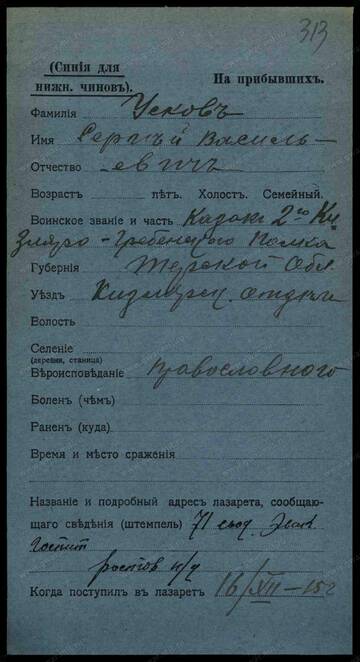 313
(Синія для
нижн. чиновъ).
На прибывшихъ.
Фамилія Усковъ
Имя Сергѣй Василь-
Отчество -евичъ
Возрастъ лѣтъ. Холост. Семейный.
Воинское званіе и часть Казакъ 2го Ки
зляро-Гребенского Полка
Губернія Терской Обл.
Уѣздъ Кизлярск. отдѣла
Волость
Селеніе
(деревня, станица)
Вѣроисповѣданіе православного
Боленъ (чѣмъ)
Раненъ (куда)
Время и мѣсто сраженія
Названіе и подробный адресъ лазарета, сообщаю-
щаго свѣдѣнія (штемпель) 71 свод. Эвак
Госпит
ростов н/д
Когда поступилъ въ лазаретъ 16/XII-15г